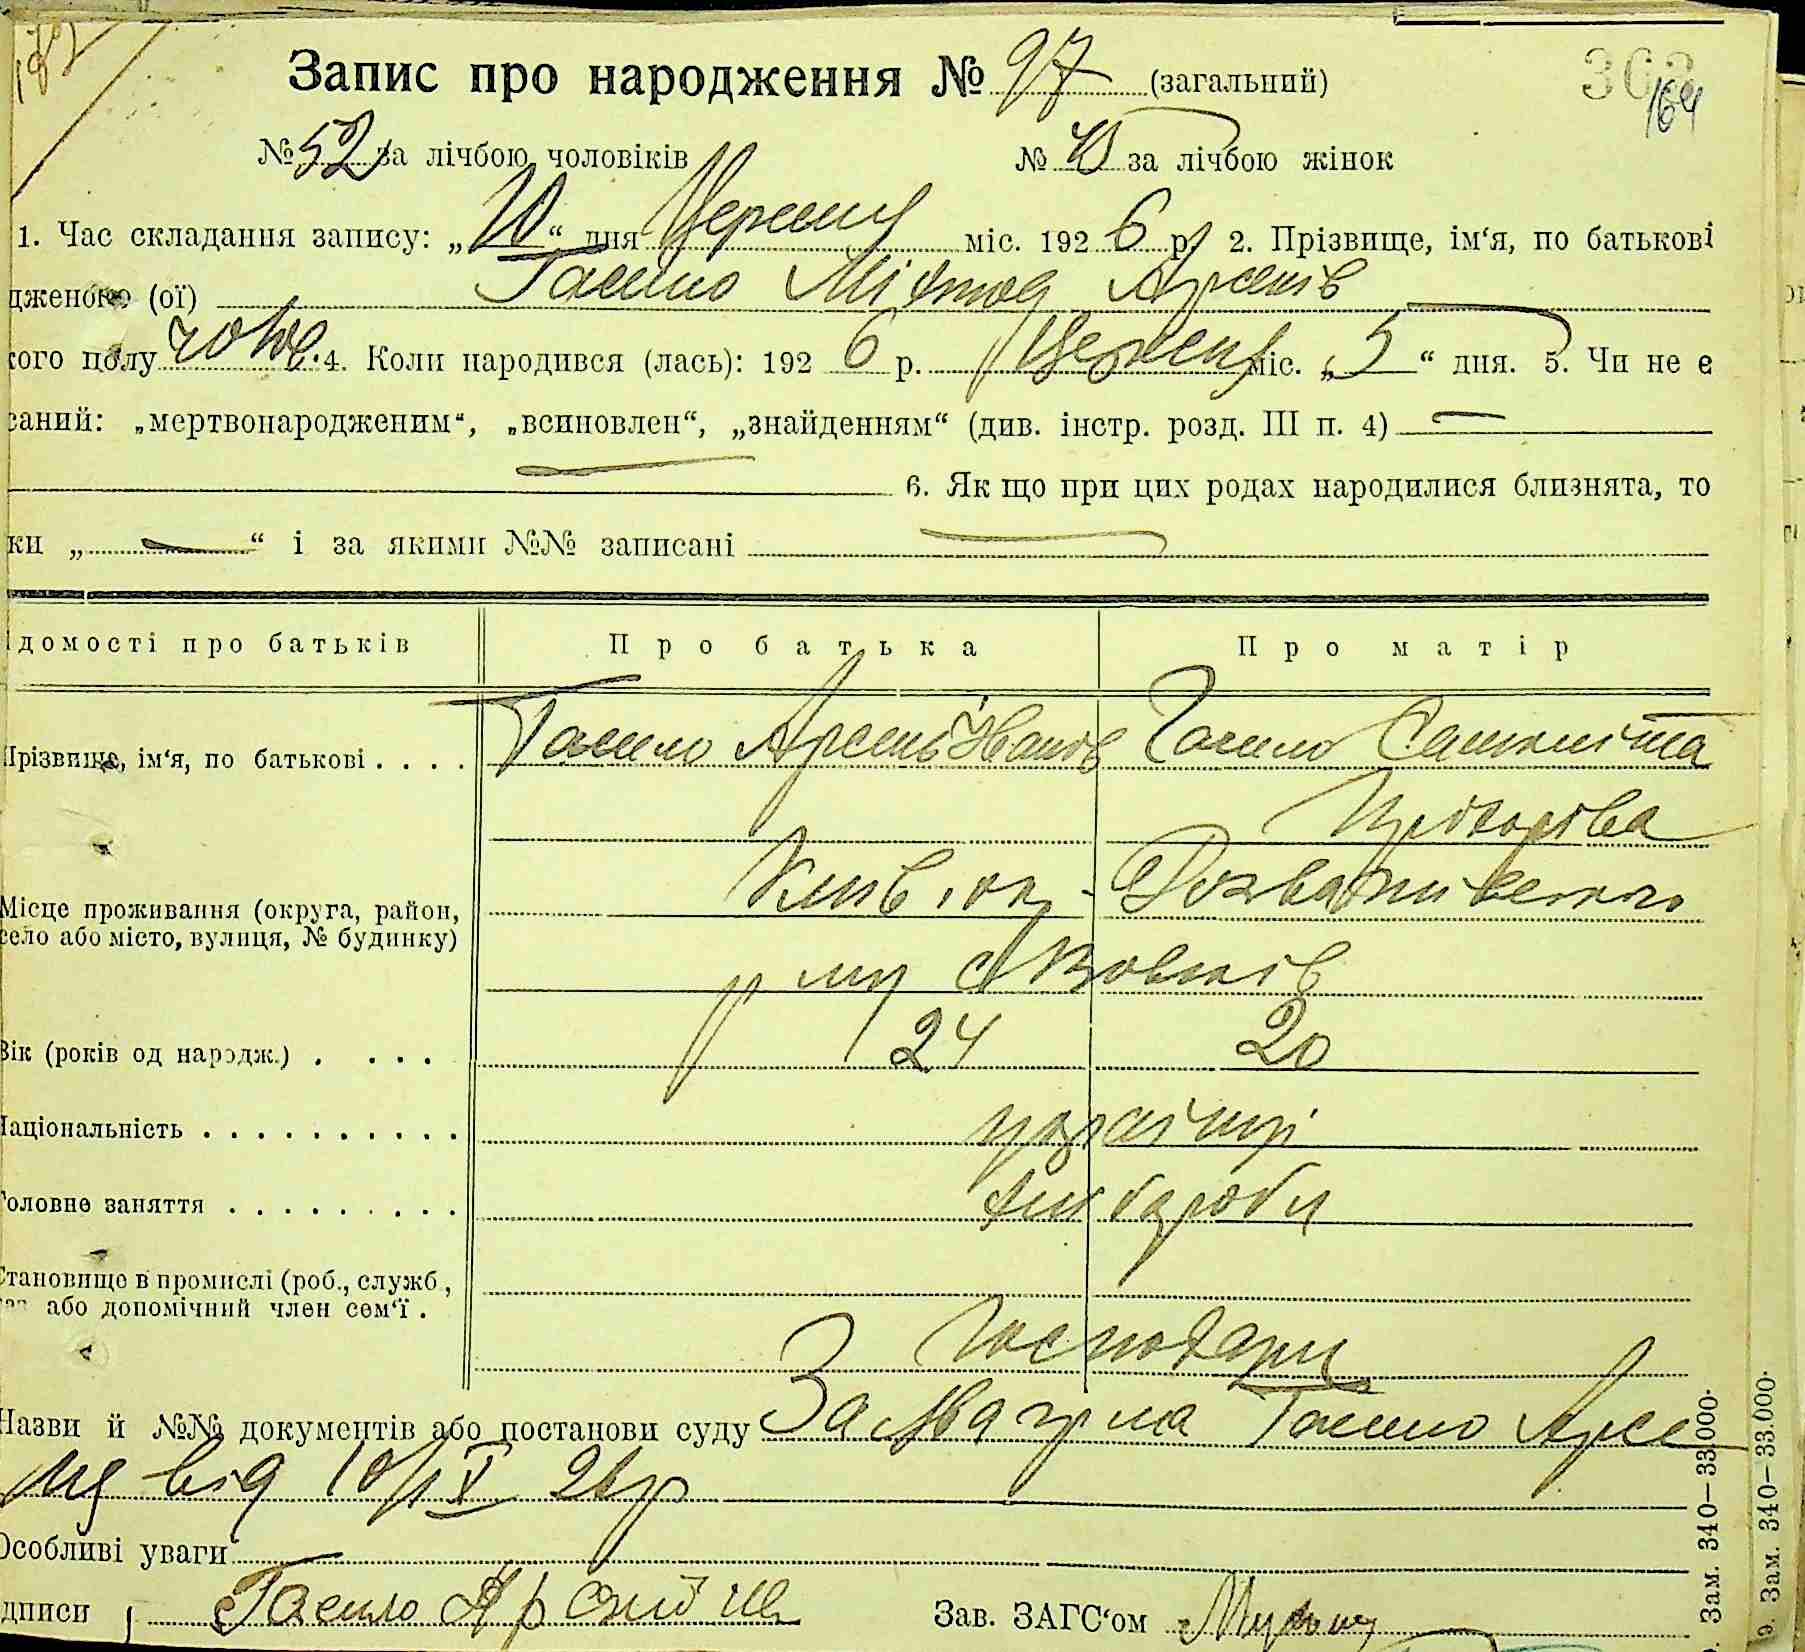 Запис про народження № 97 (загальний)
363
164
182
№ 52 за лічбою чоловіків № 45 за лічбою жінок
1. Час складання запису: „10“ дня міс. 1926 р. 2. Прізвище, ім‘я, по батькові
дженого (ої) Гасило Арсенів
кого полу чолов. 4. Коли народився (лась): 1926 р. міс. „5“ дня. 5. Чи не є
саний: „мертвонародженим“, „всиновлен“, „знайденням“ (див. інстр. розд. III п. 4) —
— 6. Як що при цих родах народилися близнята, то
ки „—“ і за якими №№ записані —
ідомості про батьків Про батька Про матір
Прізвище, ім‘я, по батькові . . . . Гасило Арсень Іванов Гасило
Місце проживання (округа, район, село або місто, вулиця, № будинку) Київ. ок. Розважівського
р ну с Вовків
Вік (років од народж.) . . . . 24 20
Національність . . . . . . . . . . українці
Головне заняття . . . . . . . . . хлібороби
Становище в промислі (роб., служб., або допомічний член сем‘ї .
Господари
Назви й №№ документів або постанови суду Заява гр на Гасило Арсе
ня від 10/IX 26 р
Особливі уваги
дписи Гасило Зав. ЗАГС‘ом
Зам. 340—33.000.
9. Зам. 340—33.000.